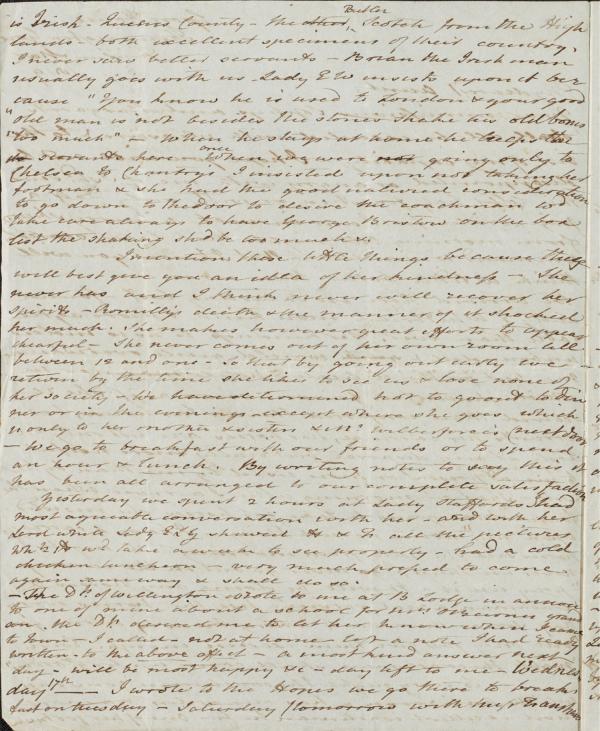 Butler
is Irish - Queens County - the other, Scotch from the High
lands - both excellent specimens of their country,
I never saw better servants - Brian the Irishman
usually goes with us - Lady E W insists upon it be
cause "You know he is used to London & your good
"old man is not besides the stones shake his old bones
"too much" - When he stays at home he keeps the
servants here - When once we were going only to
Chelsea to Chantrys I insisted upon not taking her
footman & she had the good natured consideration
to go down to the door to desire the coachman to
take care always to have George Bristow on the box
lest the shaking shd be too much &c
I mention these little things because they
will best give you an idea of her kindness - She
never has and I think never will recover her
spirits - Romilly's death & the manner of it shocked
her much. She makes however great efforts to appear
chearful - She never comes out of her own room till
between 12 and one - so that by going out early we
return by the time she likes to see us & lose none of
her society - We have determined not to go out to din
ner or in the evenings except where she goes which
is only to her mother & sisters & Mr Wilberforce's (next door)
- We go to breakfast with our friends or to spend
an hour & lunch. By writing notes to say this it
has been all arranged to our complete satisfaction
Yesterday we spent 2 hours at Lady Staffords & had
most agreeable conversation with her - and with her
Lord while Lady E & G shewed H & F all the pictures
wh it wd take a week to see properly - had a cold
chicken luncheon - very much pressed to come
again some way & shall do so.
- The Ds of Wellington wrote to me at B Lodge in answer
to one of mine about a school for Mrs grand
son. the Ds desired me to let her know when I came
to town - I called - not at home - left a note I had ready
written to the above effect - a most kind answer next
day - will be most happy &c - day left to me - Wednes
day 17th - I wrote to the Hopes we go there to break
fast on tuesday - Saturday (tomorrow with